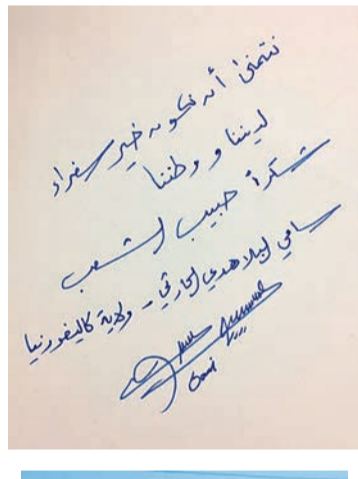 نتمنى أن نكون خير سفراء
لديننا ووطننا
شكراً حبيب الشعب
سامي الحارثي - ولاية كاليفورنيا
Sami